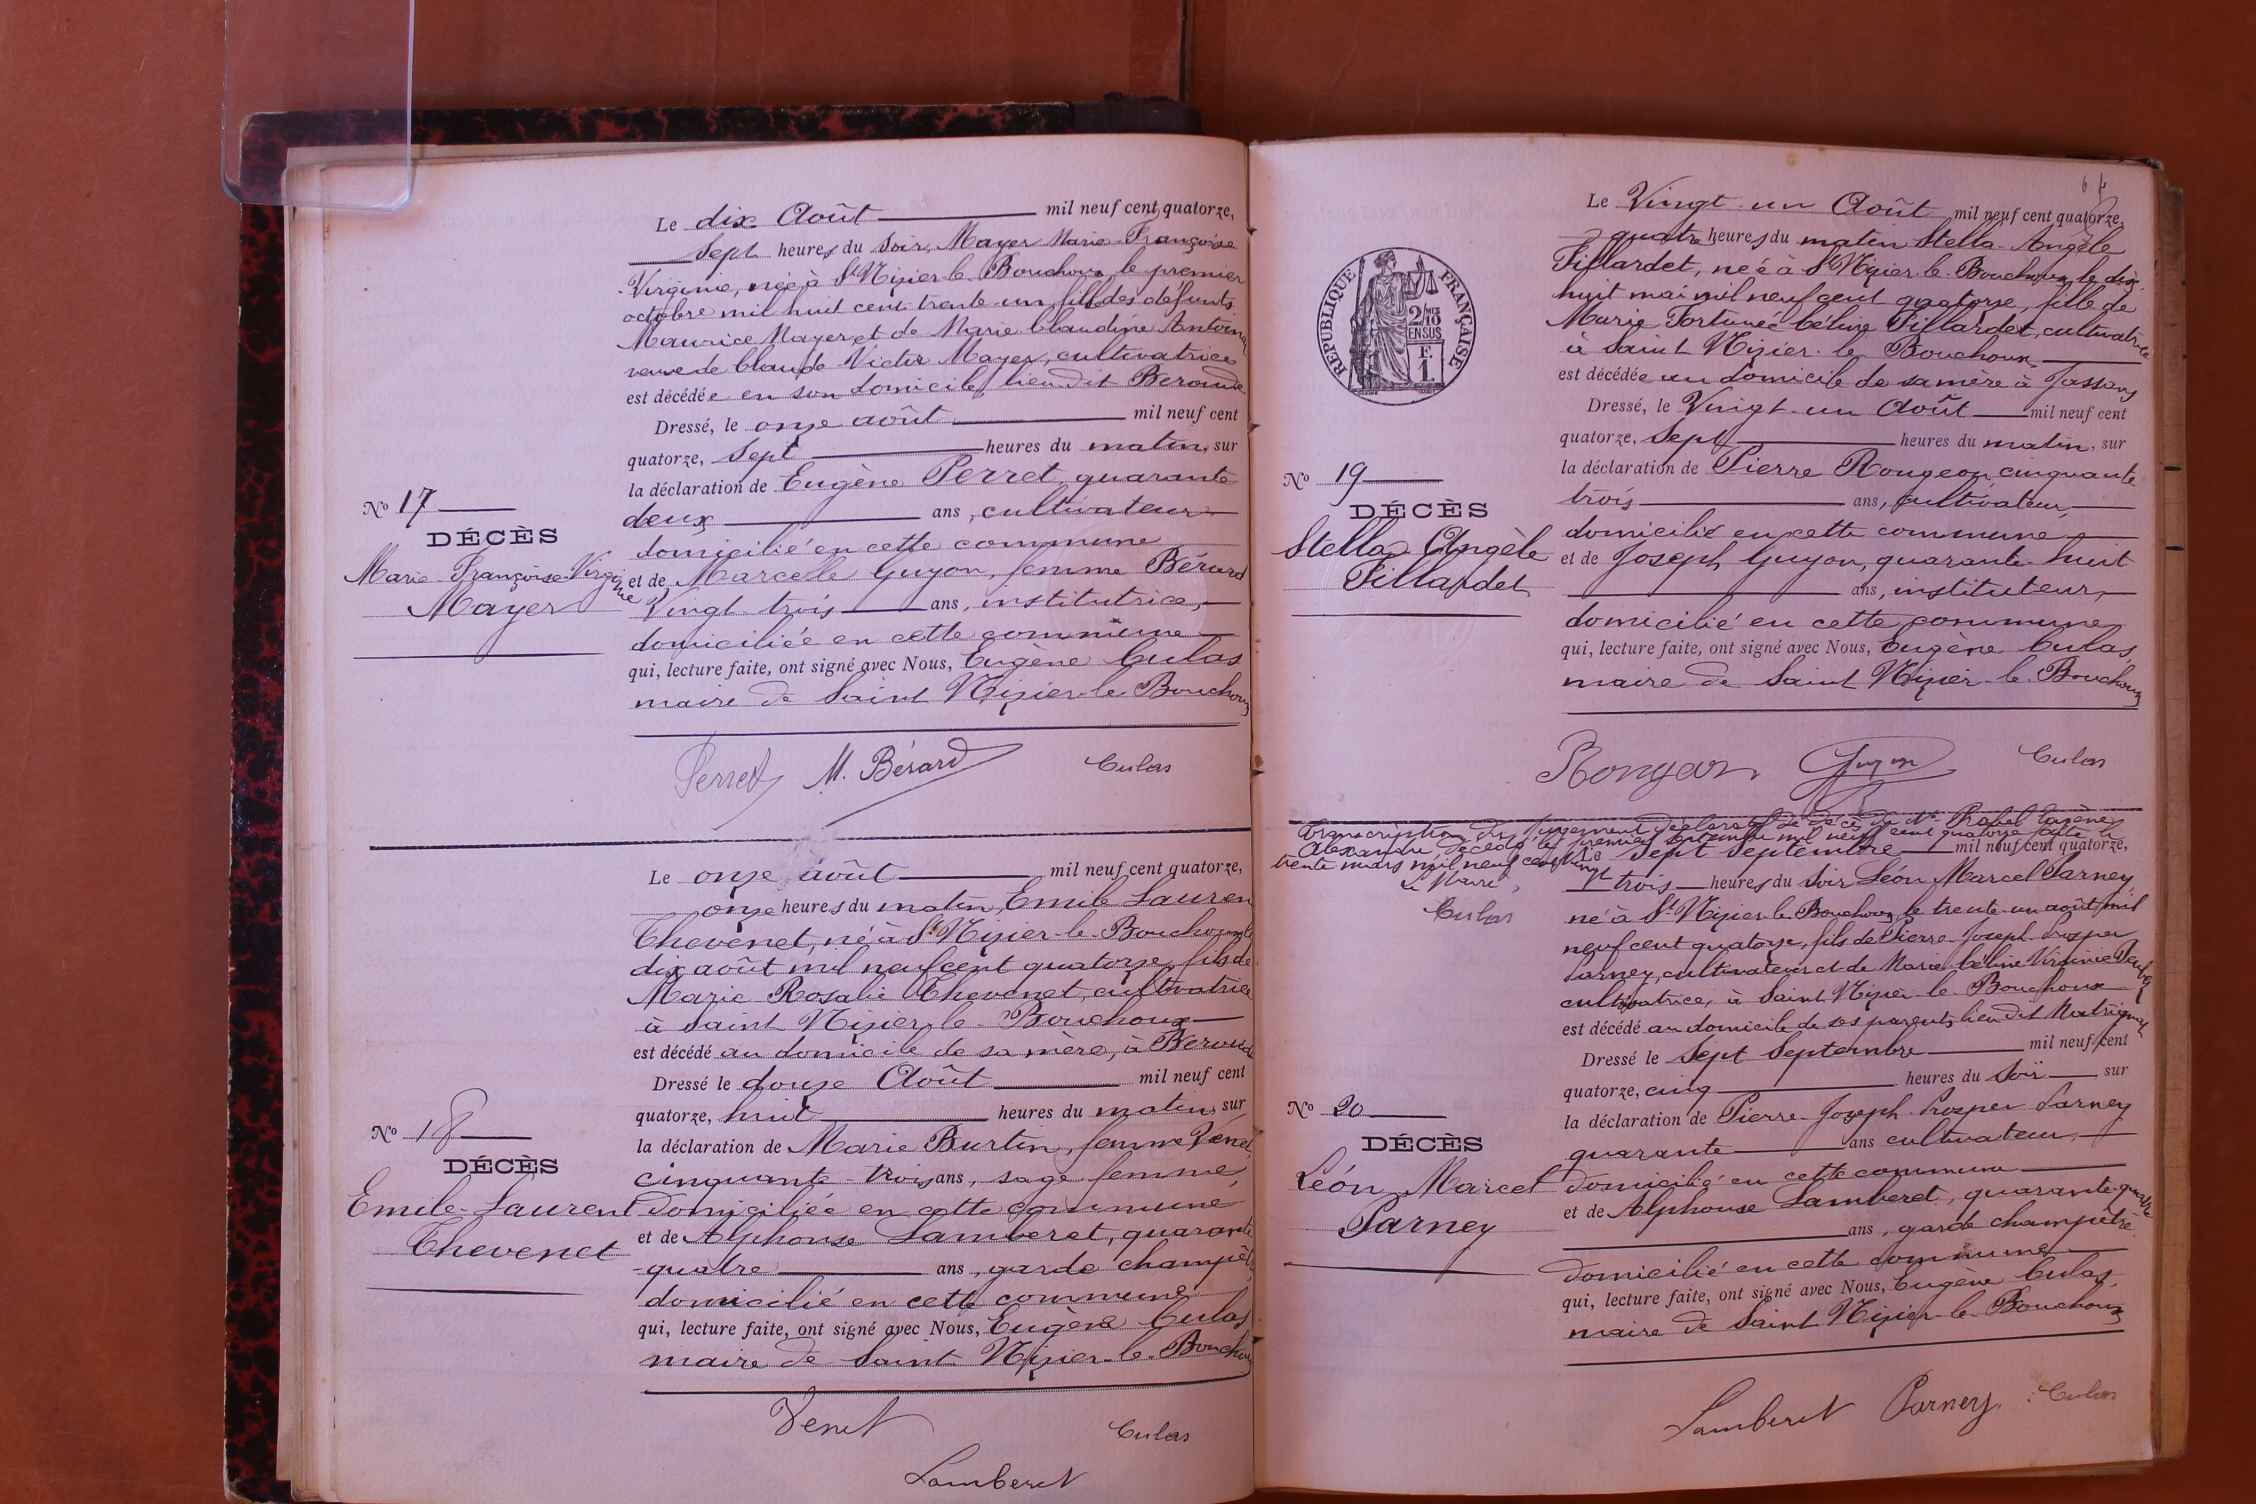 Le dix Août mil neuf cent quatorze,
Sept heures du Soir, Mayer Marie-Françoise
Virginie, née à St Nizier-le-Bouchoux, le premier
octobre mil huit cent trente-un, fille des défunts
Maurice Mayer et de Marie Claudine Antoinat
veuve de Claude Victor Mayer, cultivatrice
est décédée en son domicile lieu dit Beroude
Dressé, le onze août mil neuf cent
quatorze, Sept heures du matin, sur
la déclaration de Eugène Perret, quarante
deux ans, cultivateur
domicilié en cette commune
et de Marcelle Guyon, femme Bérard
Vingt-trois ans, institutrice,
domiciliée en cette commune
qui, lecture faite, ont signé avec Nous, Eugène Culas
maire de Saint Nizier-le-Bouchoux
No 17
DÉCÈS
Marie-Françoise-Virginie
Mayer
Perret M. Bérard Culas
Le onze août mil neuf cent quatorze,
onze heures du matin, Emile Laurent
Thevenet, né à St Nizier-le-Bouchoux le
dix août mil neuf cent quatorze, fils de
Marie Rosalie Thevenet, cultivatrice
à Saint Nizier-le-Bouchoux
est décédé au domicile de sa mère, à Beroude
Dressé le douze Août mil neuf cent
quatorze, huit heures du matin, sur
la déclaration de Marie Burtin, femme Venet,
cinquante-trois ans, sage-femme,
domiciliée en cette commune
et de Alphonse Lamberet, quarante
quatre ans, garde champêtre,
domicilié en cette commune
qui, lecture faite, ont signé avec Nous, Eugène Culas
maire de Saint Nizier-le-Bouchoux
No 18
DÉCÈS
Emile-Laurent
Thevenet
Venet Culas
Lamberet
Le Vingt-un Août mil neuf cent quatorze,
quatre heures du matin Stella-Angèle
Pillardet, née à St Nizier-le-Bouchoux, le dix-
huit mai mil neuf cent quatorze, fille de
Marie Fortunée Céline Pillardet, cultivatrice
à Saint Nizier-le-Bouchoux
est décédée au domicile de sa mère à Tassons
Dressé, le Vingt-un Août mil neuf cent
quatorze, Sept heures du matin, sur
la déclaration de Pierre Rongeon, cinquante
trois ans, cultivateur,
domicilié en cette commune
et de Joseph Guyon, quarante-huit
ans, instituteur,
domicilié en cette commune
qui, lecture faite, ont signé avec Nous, Eugène Culas,
maire de Saint Nizier-le-Bouchoux
RÉPUBLIQUE FRANÇAISE
2/10 MES
EN SUS
F.
1.
No 19
DÉCÈS
Stella-Angèle
Pillardet
Guyon Culas
Transcription du jugement déclaratif de décès de
Alexandre, décédé le premier mil neuf cent quatorze faite le
trente mars mil neuf cent vingt
Le Maire,
Culas
Le Sept Septembre mil neuf cent quatorze,
trois heures du Soir Léon Marcel Parney,
né à St Nizier-le-Bouchoux, le trente-un août mil
neuf cent quatorze, fils de Pierre-Joseph-Prosper
Parney, cultivateur et de Marie Céline Virginie
cultivatrice, à Saint Nizier-le-Bouchoux
est décédé au domicile de ses parents, lieu dit
Dressé le Sept Septembre mil neuf cent
quatorze, cinq heures du Soir sur
la déclaration de Pierre-Joseph-Prosper Parney
quarante ans cultivateur,
domicilié en cette commune
et de Alphonse Lamberet, quarante-quatre
ans, garde champêtre
domicilié en cette commune
qui, lecture faite, ont signé avec Nous, Eugène Culas,
maire de Saint Nizier-le-Bouchoux
No 20
DÉCÈS
Léon Marcel
Parney
Lamberet Parney Culas